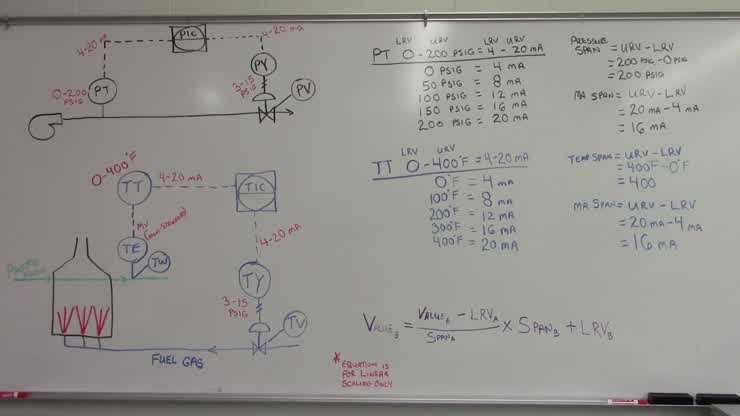 PIC
4-20 mA
4-20 mA
PY
3-15
PSIG
PV
0-200
PSIG
PT
LRV URV LRV URV
PT 0-200 PSIG = 4-20 mA
0 PSIG = 4 mA
50 PSIG = 8 mA
100 PSIG = 12 mA
150 PSIG = 16 mA
200 PSIG = 20 mA
PRESSURE
SPAN = URV - LRV
= 200 PSIG - 0 PSIG
= 200 PSIG
MA SPAN = URV - LRV
= 20 mA - 4 mA
= 16 mA
0-400°F
TT
4-20 mA
TIC
MV
TE
TW
4-20 mA
TY
3-15
PSIG
TV
FUEL GAS
LRV URV
TT 0-400°F = 4-20 mA
0°F = 4 mA
100°F = 8 mA
200°F = 12 mA
300°F = 16 mA
400°F = 20 mA
TEMP SPAN = URV - LRV
= 400F - 0°F
= 400
MA SPAN = URV - LRV
= 20 mA - 4 mA
= 16 mA
VALUE_B = (VALUE_A - LRV_A) / SPAN_A × SPAN_B + LRV_B
* EQUATION IS
FOR LINEAR
SCALING ONLY